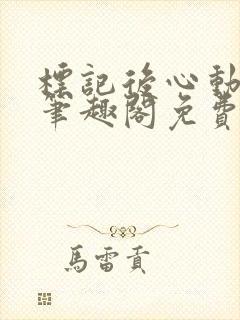 標記後心動
筆趣閣免費
馬雷貢